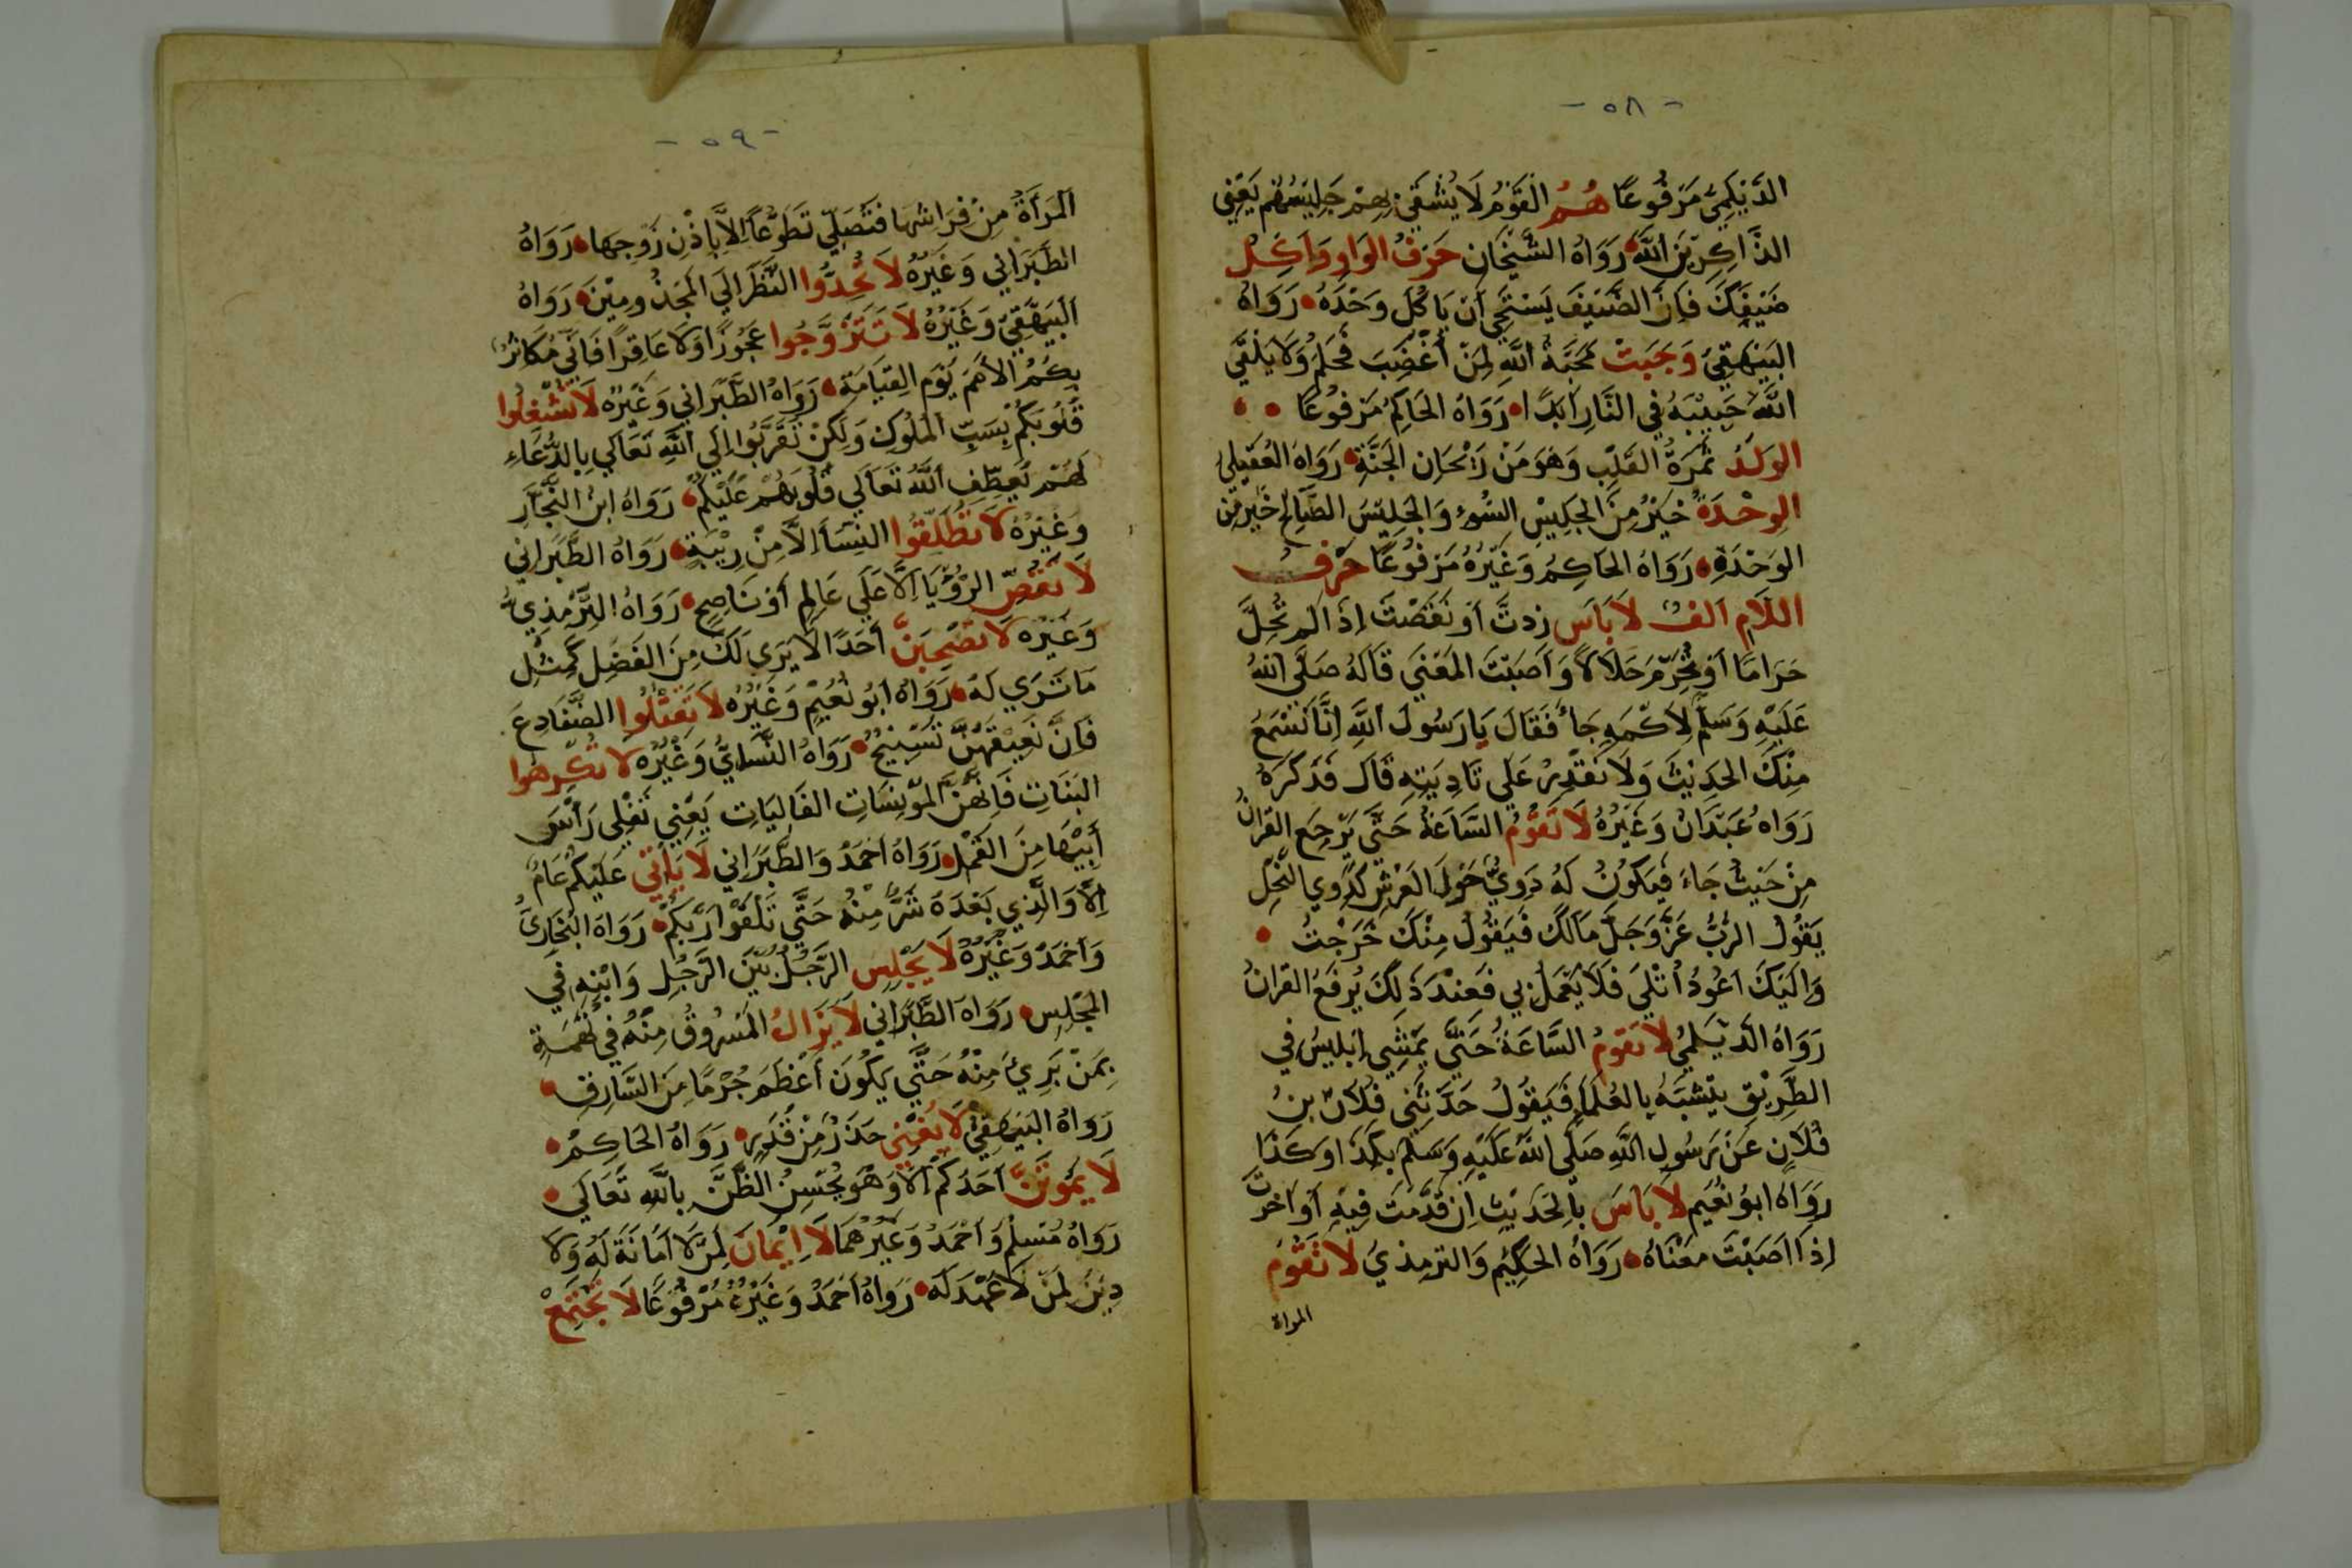 - ٥٨ -
الدَّيْلَمِيُّ مَرْفُوعًا هُمُ القَوْمُ لَا يُشْقَى بِهِمْ جَلِيسُهُمْ يَعْنِي
الذَّاكِرِينَ اللَّهَ رَوَاهُ الشَّيْخَانِ حَرْفُ الوَاوِ وَاكِلْ
ضَيْفَكَ فَإِنَّ الضَّيْفَ يَسْتَحْيِ أَنْ يَأكُلَ وَحْدَهُ رَوَاهُ
البَيْهَقِيُّ وَجَبَتْ مَحَبَّةُ اللَّهِ لِمَنْ أُغْضِبَ فَحَلُمَ وَلَا يُلْقِي
اللَّهُ حَبِيبَهُ فِي النَّارِ أَبَدًا رَوَاهُ الحَاكِمُ مَرْفُوعًا
الوَلَدُ ثَمَرَةُ القَلْبِ وَهُوَ مِنْ رَيْحَانِ الجَنَّةِ رَوَاهُ العُقَيْلِي
الوِحْدَةُ خَيْرٌ مِنَ الجَلِيسِ السُّوءِ وَالجَلِيسَ الصَّالِحُ خَيْرٌ مِنَ
الوَحْدَةِ رَوَاهُ الحَاكِمُ وَغَيْرُهُ مَرْفُوعًا حَرْفُ
اللَّامِ أَلِفْ لَا بَاسَ زِدتَّ أَوْ نَقَصْتَ إِذَا لَمْ تُحِلَّ
حَرَامًا أَوْ تُحَرِّمْ حَلَالًا وَأَصَبْتَ المَعْنَى قَالَهُ صَلَّى اللهُ
عَلَيْهِ وَسَلَّمَ لِأَكْمَهٍ جَاءَ فَقَالَ يَا رَسُولَ اللَّهِ إِنَّا نَسْمَعُ
مِنْكَ الحَدِيثَ وَلَا نَقْدِرُ عَلَى تَادِيَتِهِ قَالَ فَذَكَرَهُ
رَوَاهُ عَبْدَانُ وَغَيْرُهُ لَا تَقُومُ السَّاعَةُ حَتَّى يَرْجِعَ القُرانُ
مِنْ حَيْثُ جَاءَ فَيَكُونُ لَهُ دَوِيٌّ حَوْلَ العَرْشِ كَدَوِي النَّحْلِ
يَقُولُ الرَّبُّ عَزَّ وَجَلَّ مَا لَكَ فَيَقُولُ مِنْكَ خَرَجْتُ
وَإِلَيْكَ أَعُودُ أُتْلَى فَلَا يُعْمَلُ بِي فَعِنْدَ ذَلِكَ يُرْفَعُ القُرانُ
رَوَاهُ الدَّيْلَمِيُّ لَا تَقُومُ السَّاعَةُ حَتَّى يَمْشِي إِبْلِيسُ فِي
الطَّرِيقِ يَتَشَبَّهُ بِالعُلَمَاءِ فَيَقُولُ حَدَّثَنِي فُلَانٌ بنُ
فُلَانٍ عَنْ رَسُولِ اللَّهِ صَلَّى اللَّهُ عَلَيْهِ وَسَلَّمَ بِكَذَا وَكَذَا
رَوَاهُ ابُو نُعَيْمٍ لَا بَاسَ بِالحَدِيثِ إِنْ قَدَّمْتَ فِيهِ أَوْ أَخَّرْتَ
إِذَا أَصَبْتَ مَعْنَاهُ رَوَاهُ الحَكِيمُ وَالتِرمِذِيُ لَا تَقُومُ
المراة
- ٥٩ -
المَرْأَةُ مِنْ فِرَاشِهَا فَتُصَلِّي تَطَوُّعًا إِلَّا بِإِذْنِ زَوْجِهَا رَوَاهُ
الطَّبَرَانِي وَغَيْرُهُ لَا تُحِدُّوا النَّظَرَ إِلَى المَجْذُومِيْنَ رَوَاهُ
البَيْهَقِيُّ وَغَيْرُهُ لَا تَتَزَوَّجُوا عَجُوزًا وَلَا عَاقِرًا فَإِنِّي مُكَاثِرٌ
بِكُمُ الأُمَمَ يَوْمَ القِيَامَةِ رَوَاهُ الطَّبَرَانِي وَغَيْرُهُ لَا تَشْغِلُوا
قُلُوبَكُمْ بِسَبِّ المُلُوكِ وَلَكِنْ تَقَرَّبُوا إِلَى اللَّهِ تَعَالَى بِالدُّعَاءِ
لَهُمْ يُعَطِّفِ اللَّهُ تَعَالَى قُلُوبَهُمْ عَلَيْكُمْ رَوَاهُ ابنُ النَّجَّارِ
وَغَيْرُهُ لَا تُطَلِّقُوا النِّسَاءَ إِلَّا مِنْ رِيْبَةٍ رَوَاهُ الطَّبَرَانِي
لَا تَقُصَّ الرُّؤْيَا إِلَّا عَلَى عَالِمٍ أَوْ نَاصِحٍ رَوَاهُ التِّرْمِذِيُّ
وَغَيْرُهُ لَا تَصْحَبَنَّ أَحَدًا لَا يَرَى لَكَ مِنَ الفَضْلِ كَمِثْلِ
مَا تَرَى لَهُ رَوَاهُ أَبُو نُعَيْمٍ وَغَيْرُهُ لَا تَقْتُلُوا الضَّفَادِعَ
فَإِنَّ نَعِيْقَهُنَّ تَسْبِيْحٌ رَوَاهُ النَّسَايُّ وَغَيْرُهُ لَا تُكْرِهُوا
البَنَاتِ فَإِنَّهُنَّ المُؤْنِسَاتِ الغَالِيَاتِ يَعْنِي تَفْلِي رَأْسَ
أَبِيْهَا مِنَ القَمْلِ رَوَاهُ أَحْمَدُ وَالطَّبَرَانِي لَا يَأْتِي عَلَيْكُمْ عَامٌ
إِلَّا وَالَّذِي بَعْدَهُ شَرٌّ مِنْهُ حَتَّى تَلْقَوْا رَبَّكُمْ رَوَاهُ البُخَارِيُّ
وَأَحْمَدُ وَغَيْرُهُ لَا يَجْلِسِ الرَّجُلُ بَيْنَ الرَّجُلِ وَابْنِهِ فِي
المَجْلِسِ رَوَاهُ الطَّبَرَانِي لَا يَزَالُ المَسْرُوقُ مِنْهُ فِي تُهْمَةٍ
بِمَنْ بَرِيَ مِنْهُ حَتَّى يَكُونَ أَعْظَمَ جُرْمًا مِنَ السَّارِقِ
رَوَاهُ البَيْهَقِيُّ لَا يُغْنِي حَذَرٌ مِنْ قَدَرٍ رَوَاهُ الحَاكِمُ
لَا يَمُوتَنَّ أَحَدُكُمْ إِلَّا وَهُوَ يُحْسِنُ الظَّنَّ بِاللَّهِ تَعَالَى
رَوَاهُ مُسْلِمٌ وَأَحْمَدُ وَغَيْرُهُمَا لَا إِيْمَانَ لِمَنْ لَا أَمَانَةَ لَهُ وَلَا
دِيْنَ لِمَنْ لَا عَهْدَ لَهُ رَوَاهُ أَحْمَدُ وَغَيْرُهُ مَرْفُوعًا لَا يَجْتَمِعْ